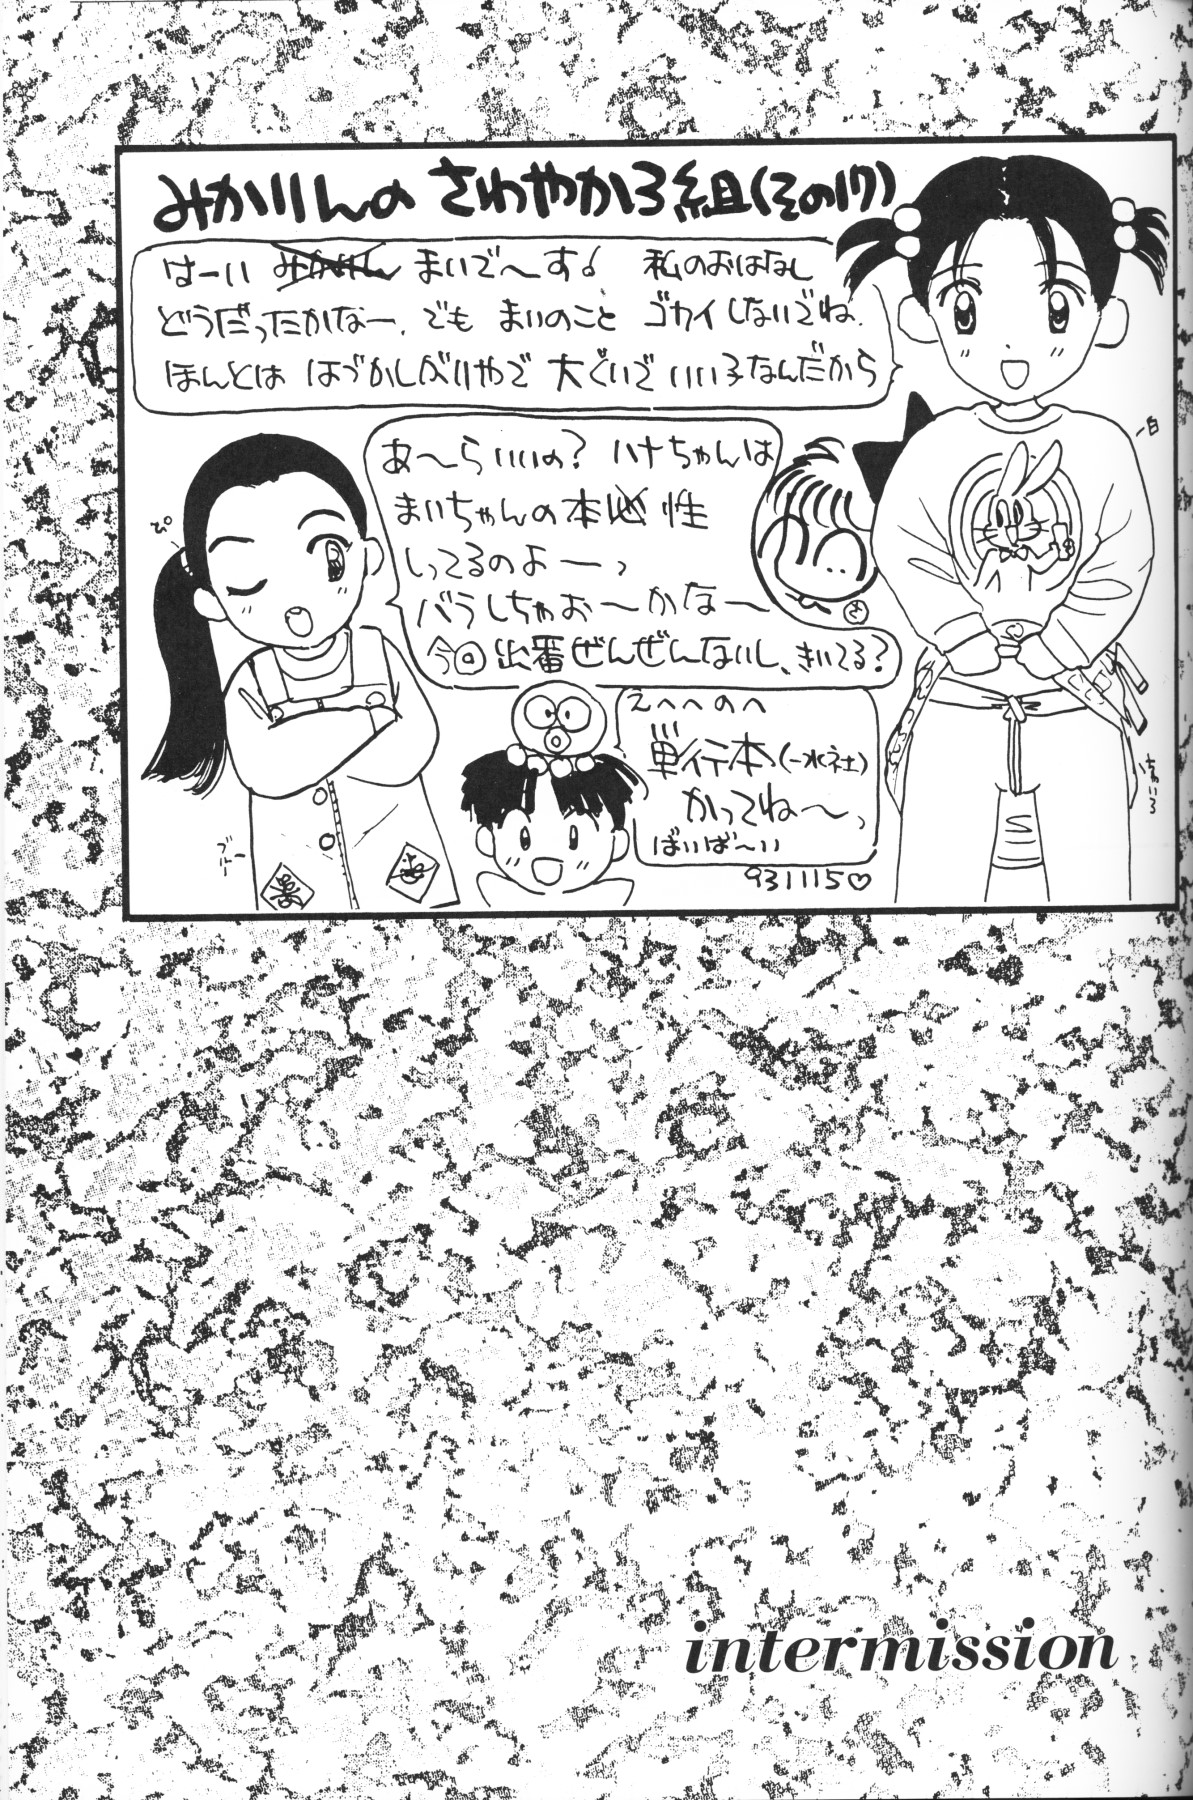 みかりんの さわやか3組(その17)
はーい みかりん まいで〜す♪ 私のおはなし
どうだったかなー、でも まいのこと ゴカイしないでね、
ほんとは はづかしがりやで 大ぐいで いい子なんだから
あ〜らいいの? ハナちゃんは
まいちゃんの本 性
しってるのよーっ
バラしちゃお〜かな〜
今回出番ぜんぜんないし、きいてる?
えへへのへ
単行本(一水社)
かってね〜っ
ばいば〜い
931115♡
白
ブルー
intermission